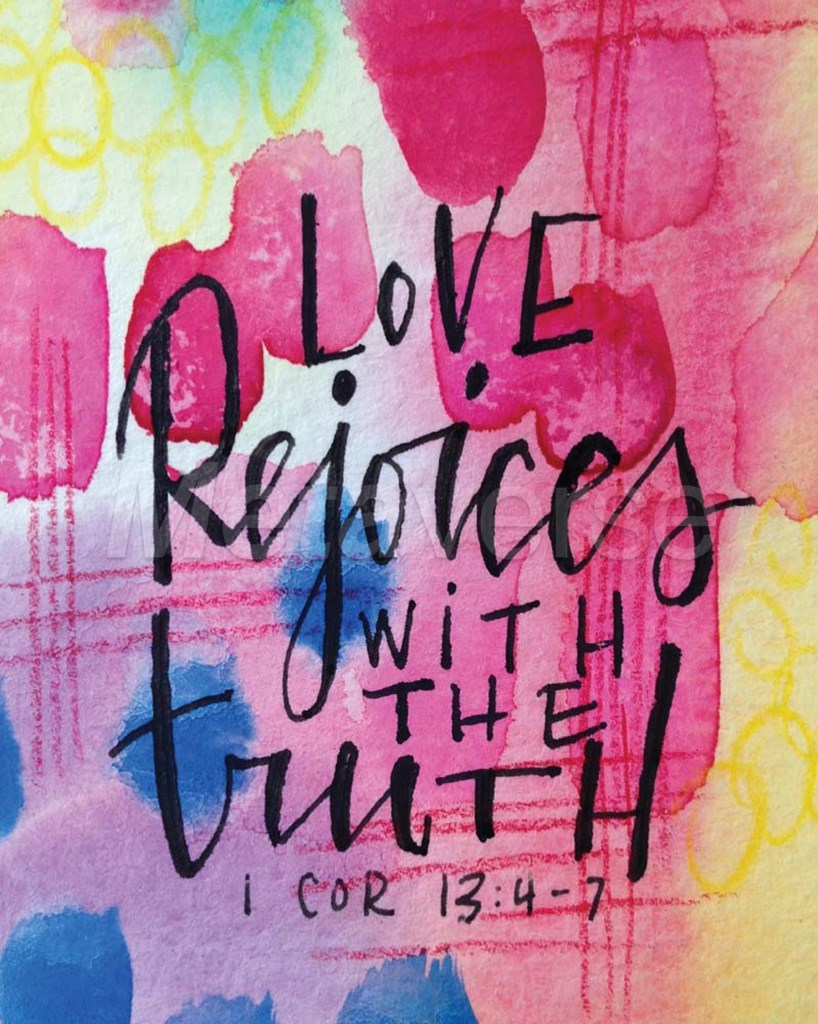 LOVE
Rejoices
WiTH
THE
truTH
1 COR 13:4-7
Metaverse